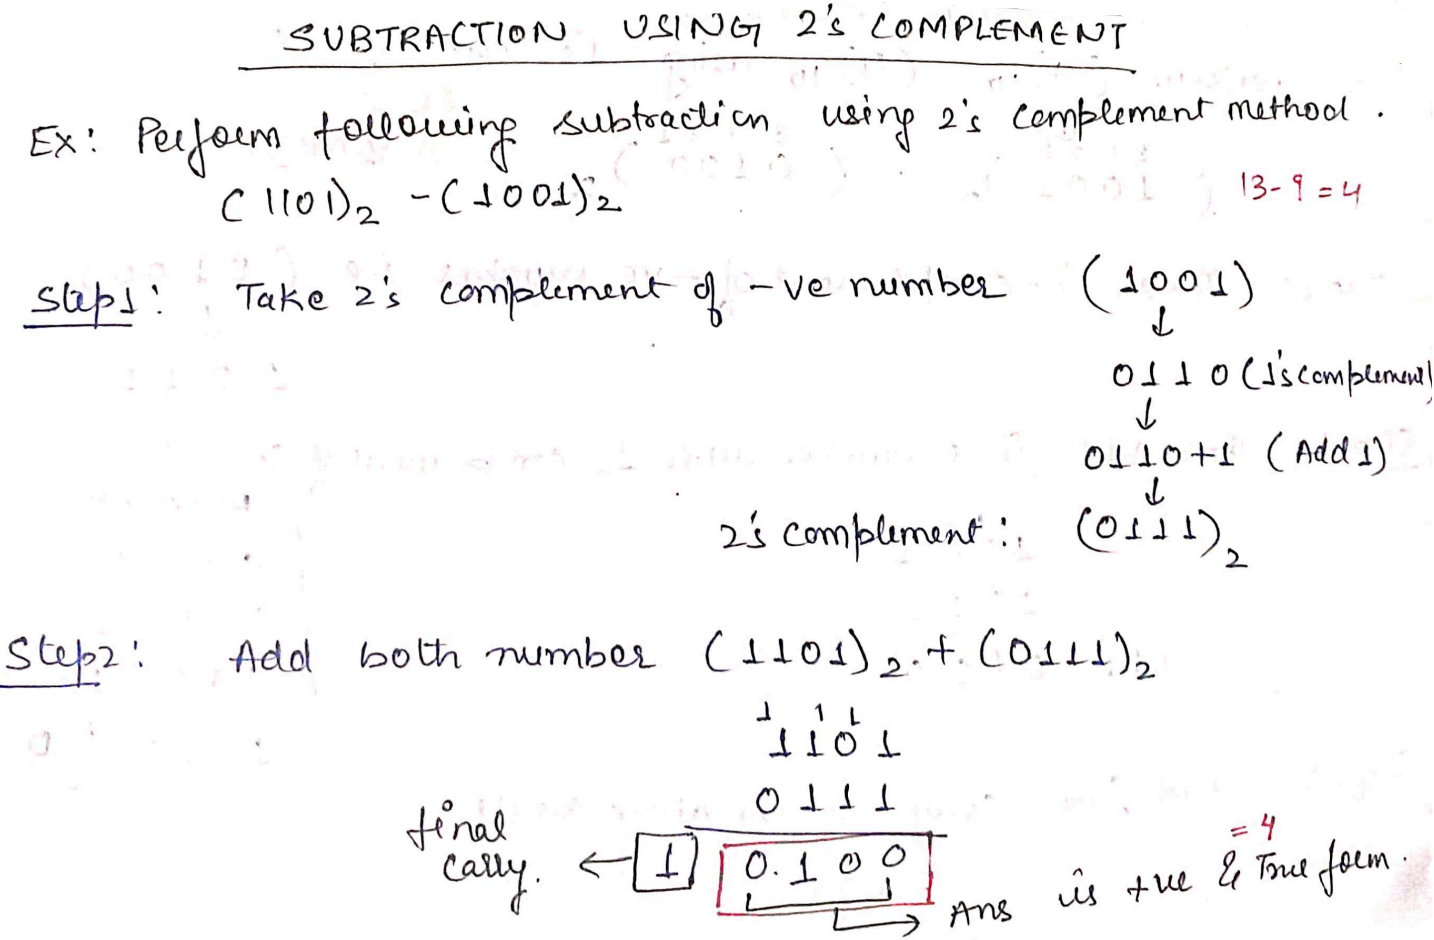 SUBTRACTION USING 2's COMPLEMENT
Ex: Perform following subtraction using 2's complement method.
(1101)₂ - (1001)₂
13-9=4
Step1: Take 2's complement of -ve number (1001)
↓
0110 (1's complement)
↓
0110+1 (Add 1)
↓
2's complement: (0111)₂
Step2: Add both number (1101)₂ + (0111)₂
1 1 1
1101
0111
final carry. ← 1 0.100
= 4
→ Ans is +ve & True form.